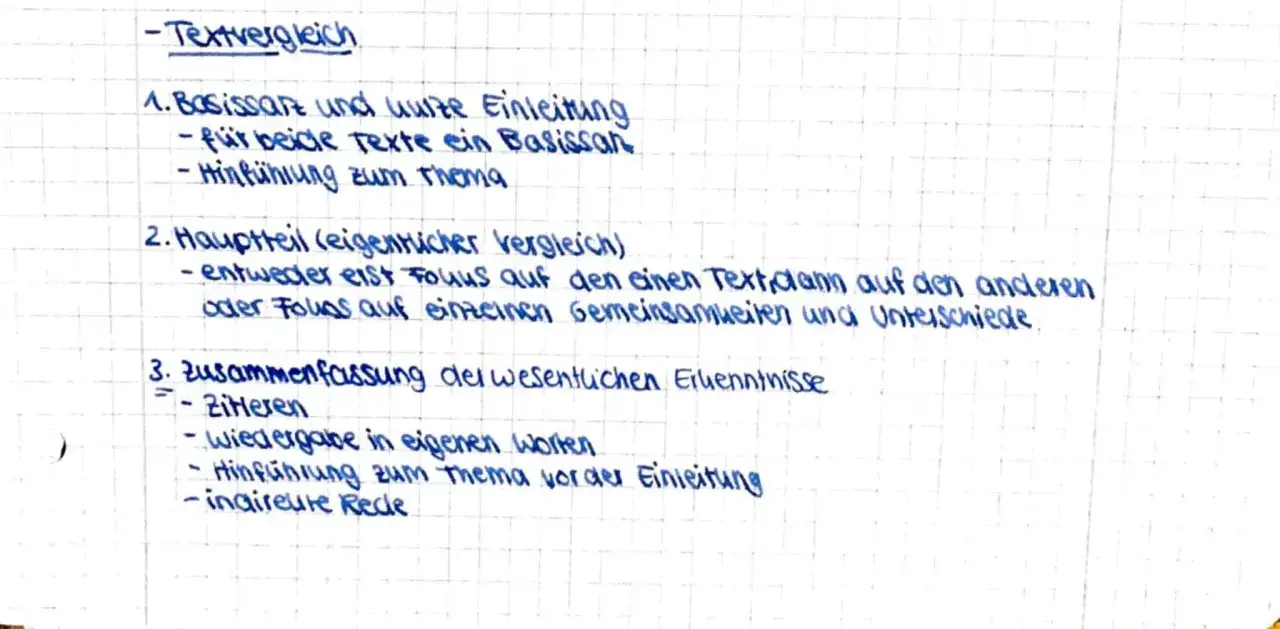 - Textvergleich
1. Basissatz und kurze Einleitung
- für beide Texte ein Basissatz
- Hinführung zum Thema
2. Hauptteil (eigentlicher Vergleich)
- entweder erst Fokus auf den einen Text, dann auf den anderen
oder Fokus auf einzelnen Gemeinsamkeiten und Unterschiede
3. Zusammenfassung der wesentlichen Erkenntnisse
- Zitieren
- Wiedergabe in eigenen Worten
- Hinführung zum Thema vor der Einleitung
- indirekte Rede